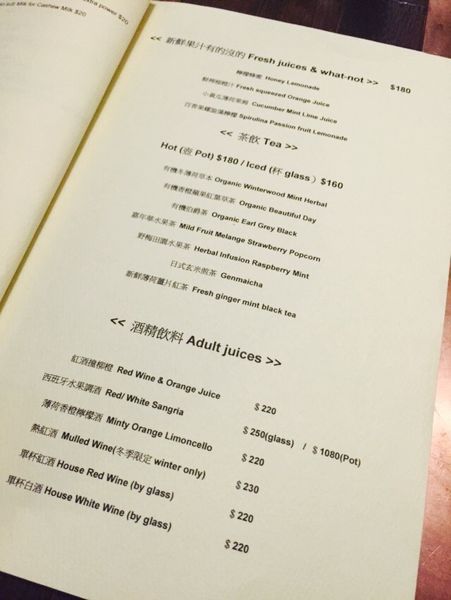 power $20
Milk for Cashew Milk $20
<< 新鮮果汁有的沒的 Fresh juices & what-not >> $180
檸檬蜂蜜 Honey Lemonade
鮮榨柳橙汁 Fresh squeezed Orange Juice
小黃瓜薄荷萊姆 Cucumber Mint Lime Juice
百香果螺旋藻檸檬 Spirulina Passion fruit Lemonade
<< 茶飲 Tea >>
Hot (壺 Pot) $180 / Iced (杯 glass ) $160
有機冬薄荷草本 Organic Winterwood Mint Herbal
有機香橙蘋果紅葉草茶 Organic Beautiful Day
有機伯爵茶 Organic Earl Grey Black
嘉年華水果茶 Mild Fruit Melange Strawberry Popcorn
野莓田園水果茶 Herbal Infusion Raspberry Mint
日式玄米煎茶 Genmaicha
新鮮薄荷薑片紅茶 Fresh ginger mint black tea
<< 酒精飲料 Adult juices >>
紅酒撞柳橙 Red Wine & Orange Juice $ 220
西班牙水果調酒 Red/ White Sangria $ 250(glass) / $ 1080(Pot)
薄荷香橙檸檬酒 Minty Orange Limoncello $ 220
熱紅酒 Mulled Wine(冬季限定 winter only) $ 230
單杯紅酒 House Red Wine (by glass) $ 220
單杯白酒 House White Wine (by glass) $ 220